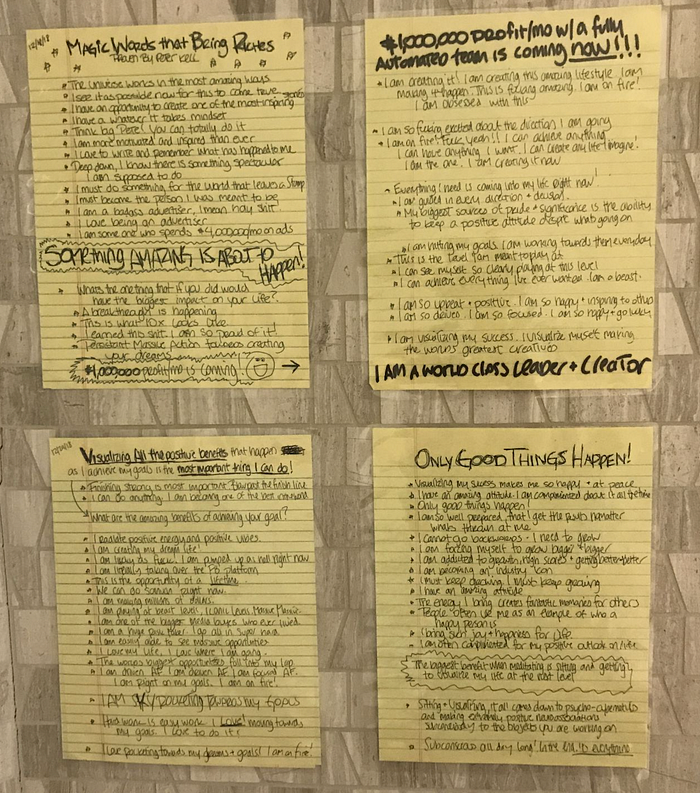 12/18/18
Magic Words that Bring Riches
Thrown By Peter Kell
The universe works in the most amazing ways
I see it as possible now for this to come true
I have an opportunity to create one of the most inspiring stories
I have a whatever it takes mindset
Think big Pete! You can totally do it
I am more motivated and inspired than ever
I love to write and remember what has happened to me
Deep down, I know there is something spectacular
I am supposed to do
I must do something for the world that leaves a stamp
I must become the person I was meant to be
I am a badass advertiser, I mean holy shit
I love being an advertiser
I am some one who spends $4,000,000/mo on ads
Something AMAZING IS ABOUT to HAPPEN!
What's the one thing that if you did would
have the biggest impact on your life?
A breakthrough is happening
This is what 10x looks like
I earned this shit. I am so proud of it!
Persistent Massive Action towards creating
your dreams
$1,000,000 profit/mo is coming!
$1,000,000 profit/mo w/ a fully
Automated team is coming now!!!
I am creating it! I am creating this amazing lifestyle. I am
making it happen. This is fucking amazing. I am on fire!
I am obsessed with this
I am so fucking excited about the direction I am going
I am on fire! Fuck yeah!! I can achieve anything
I can have anything I want. I can create any life I imagine.
I am the one. I am creating it now
Everything I need is coming into my life right now!
I am guided in every direction + decision.
My biggest sources of pride + significance is the ability
to keep a positive attitude despite whats going on
I am hitting my goals. I am working towards them everyday
This is the level I am meant to play at
I can see myself so clearly playing at this level
I can achieve everything I've ever wanted. I am a beast.
I am so upbeat + positive. I am so happy + inspiring to others
I am so driven. I am so focused. I am so happy + go lucky
I am visualizing my success. I visualize myself making
the worlds greatest creatives
I AM A WORLD CLASS Leader + Creator
Visualizing All the positive benefits that happen
as I achieve my goals is the most important thing I can do!
Finishing strong is most important. Toward the finish line
I can do anything. I am becoming one of the best
What are the amazing benefits of achieving your goal?
I radiate positive energy and positive vibes.
I am creating my dream life!
I am lucky as fuck. I am pumped up as hell right now
I am literally taking over the FB platform
This is the opportunity of a lifetime.
We can go right now.
I am making millions of dollars.
I am playing at beast level. Iconic Levels
I am one of the biggest media buyers who ever lived.
I am a huge I go all in Super hard.
I am easily able to see massive opportunities
I love my life, I love where I am going.
The worlds biggest opportunities fall into my lap
I am driven AF. I am driven AF. I am focused AF.
I am Right on my goals. I am on fire!
I AM SKY rocketing towards my goals
Hard work is easy work. I Love! moving towards
my goals. I love to do it!
I love rocketing towards my dreams + goals! I am on fire!
ONLY GOOD THINGS HAPPEN!
Visualizing my success makes me so happy + at peace
I have an amazing attitude. I am complimented about it all the time
Only good things happen!
I am so well prepared, that I get the results no matter
whats thrown at me
I cannot go backwards - I need to grow
I am forcing myself to grow bigger + bigger
I am addicted to growth, high scores + getting better + better
I am becoming an industry icon
I must keep growing. I must keep growing
I have an amazing attitude
The energy I bring creates fantastic memories for others
People often use me as an example of who a
happy person is
I bring such joy + happiness for life
I am often complimented for my positive outlook on life
The biggest benefit when meditating is sitting and getting
to visualize my life at the next level
Sitting + Visualizing, it all comes down to psycho-cybernetics
and making extremely positive neuroassociations
subconsciously to the projects you are working on
Subconscious all day long! is everything